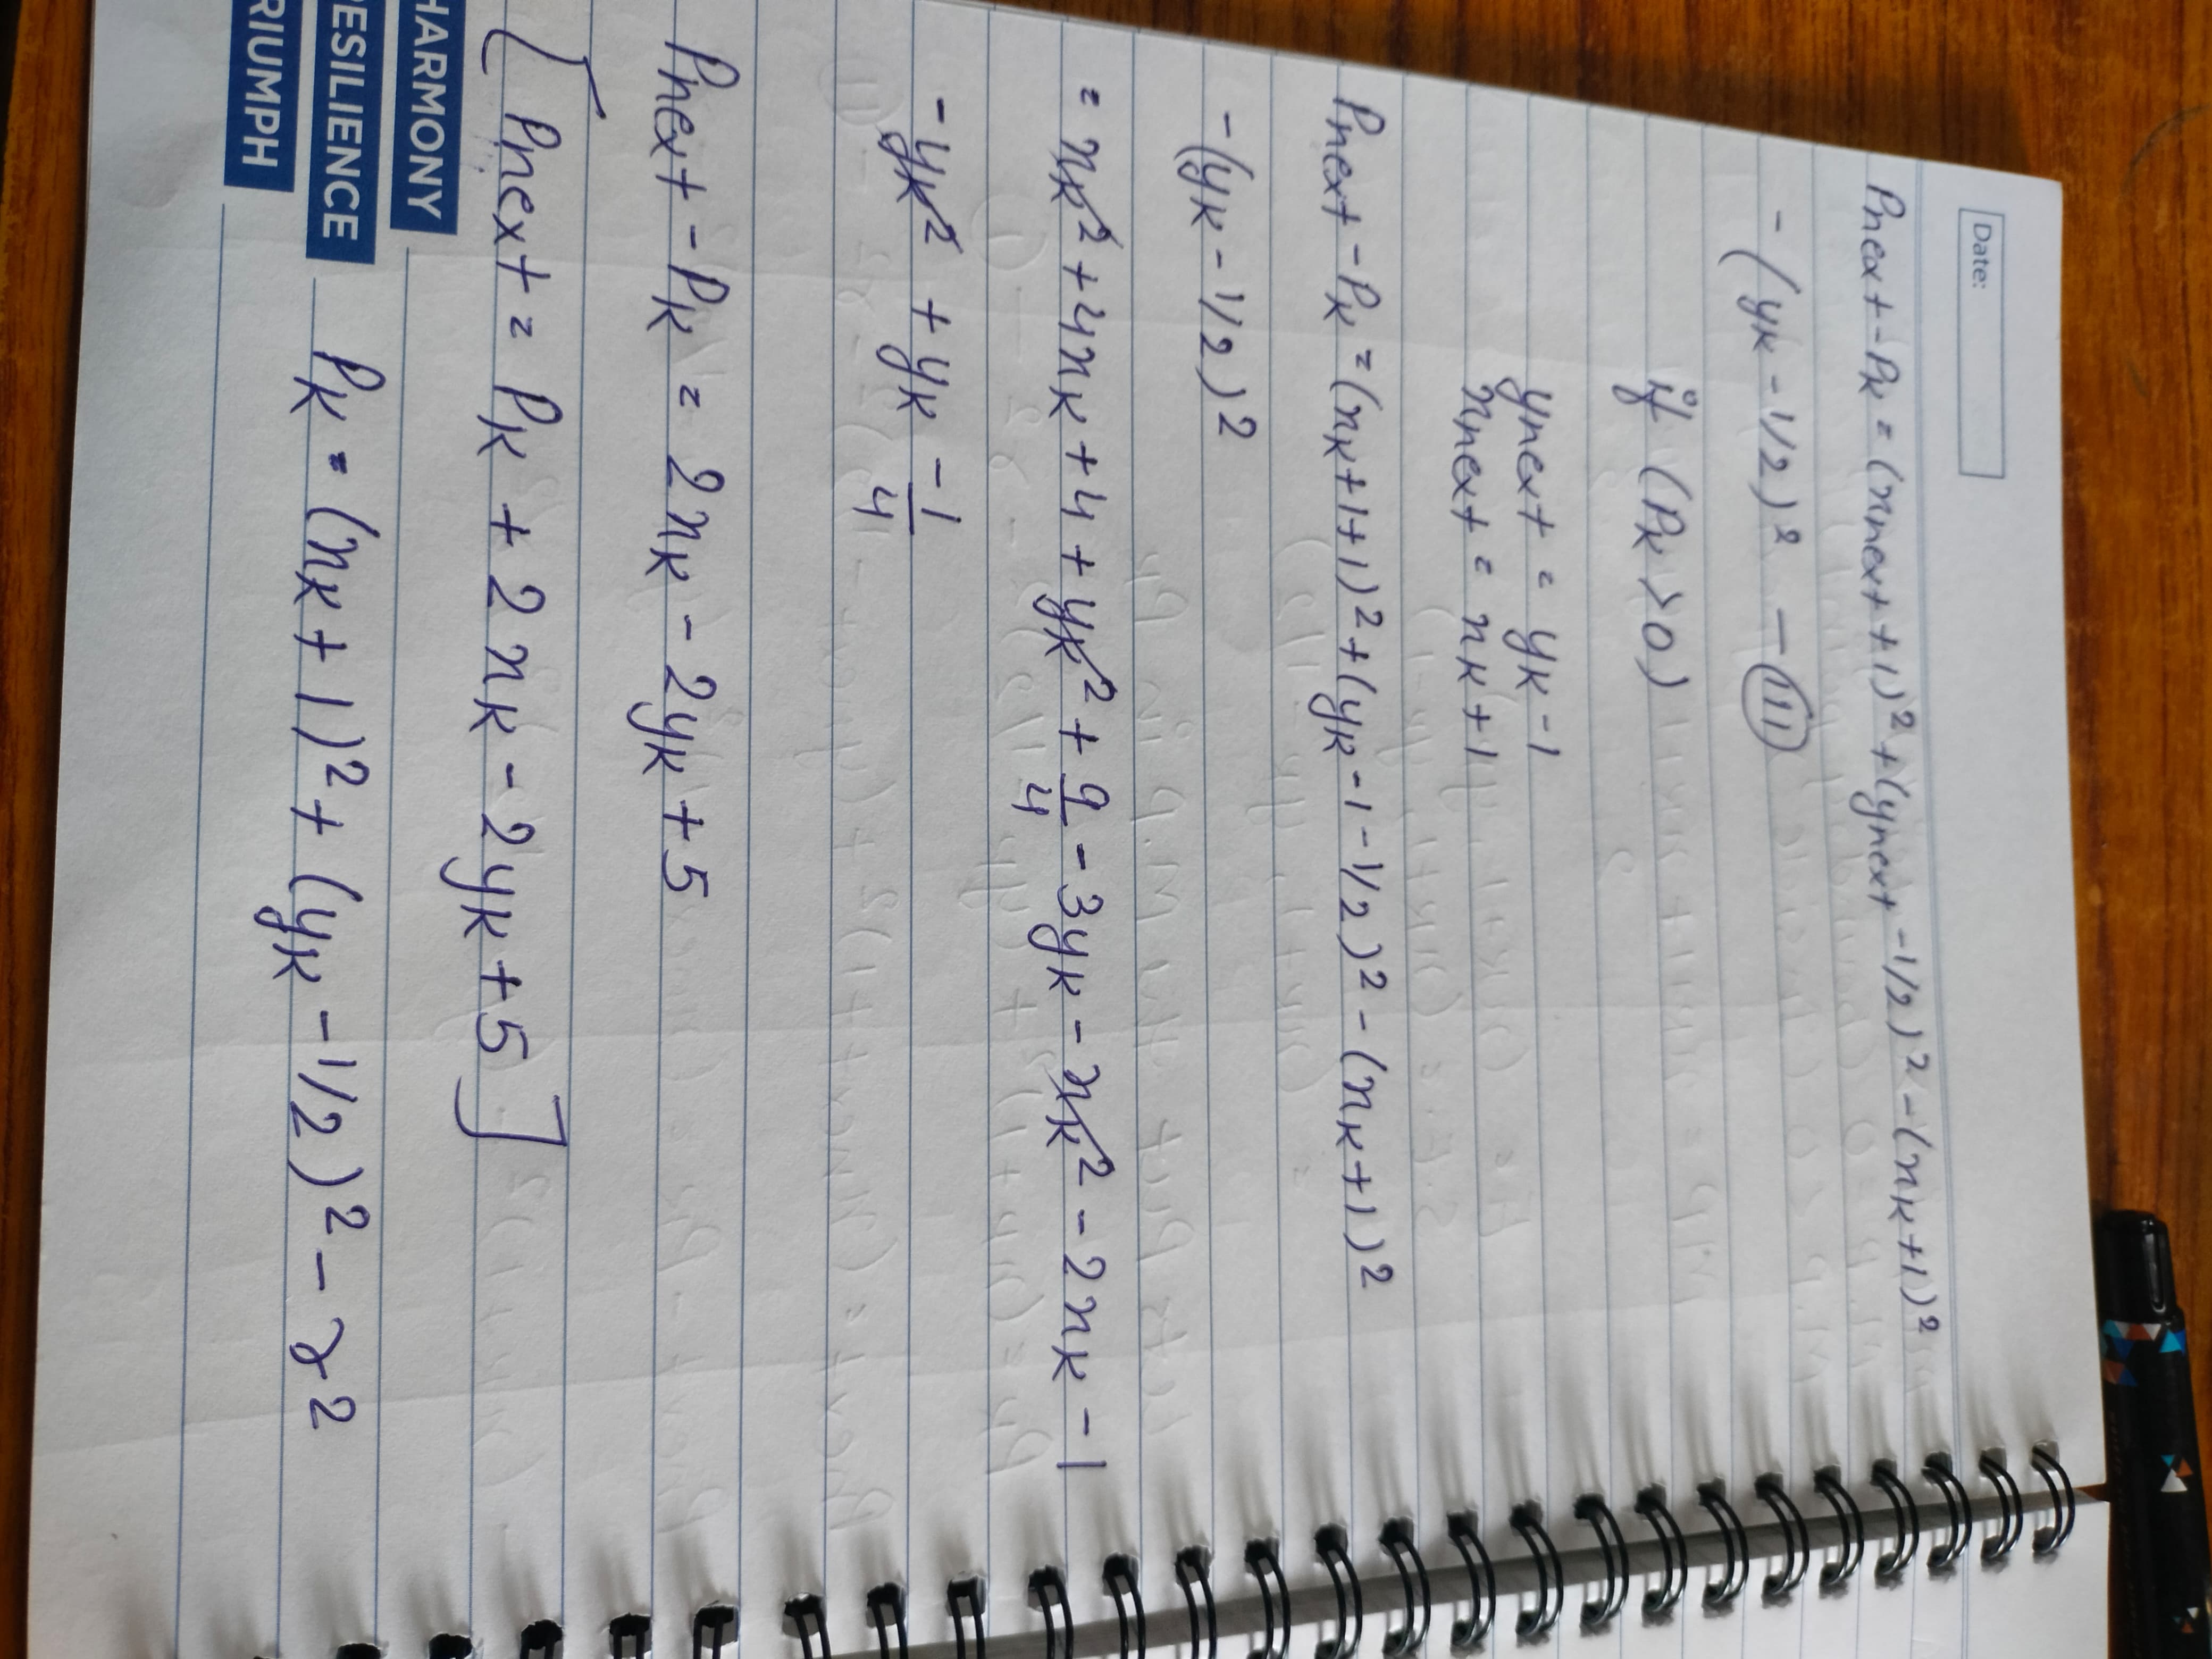 Date:
Pnext - Pk = (xnext + 1)² + (ynext - 1/2)² - (xk+1)²
- (yk - 1/2)² - (11)
if (Pk > 0)
ynext = yk - 1
xnext = xk + 1
Pnext - Pk = (xk+1+1)² + (yk - 1 - 1/2)² - (xk+1)²
- (yk - 1/2)²
= xk² + 4xk + 4 + yk² + 9/4 - 3yk - xk² - 2xk - 1
- yk² + yk - 1/4
Pnext - Pk = 2xk - 2yk + 5
[Pnext = Pk + 2xk - 2yk + 5]
HARMONY
ESILIENCE
RIUMPH
Pk = (xk + 1)² + (yk - 1/2)² - r²